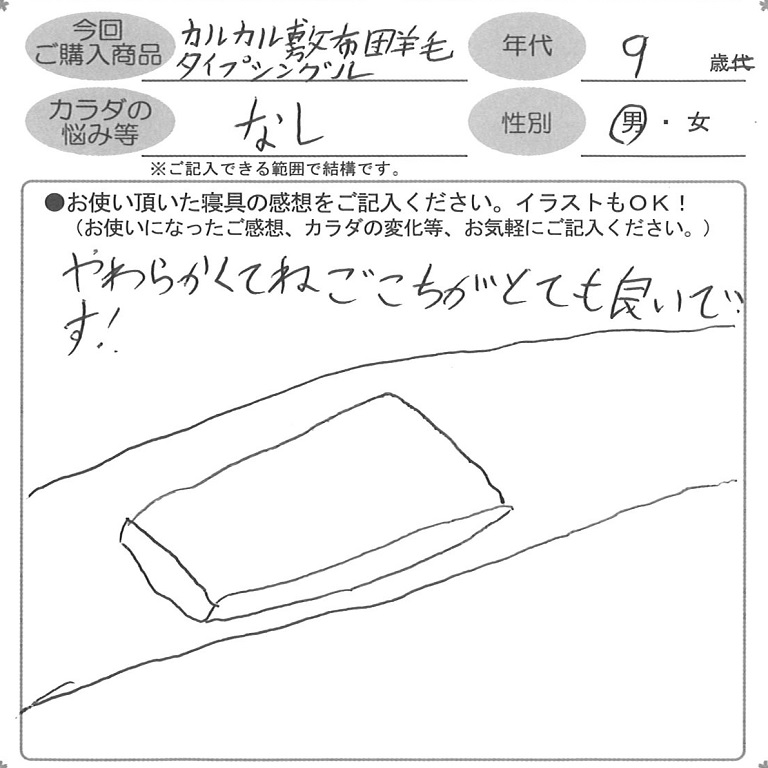 今回
ご購入商品
カルカル敷布団羊毛
タイプシングル
年代
9 歳代
カラダの
悩み等
なし
性別
男・女
※ご記入できる範囲で結構です。
●お使い頂いた寝具の感想をご記入ください。イラストもOK!
(お使いになったご感想、カラダの変化等、お気軽にご記入ください。)
やわらかくてねごこちがとても良いで
す!